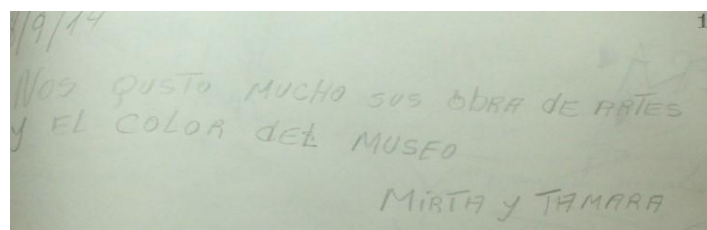 /9/14
1
NOS QUSTO MUCHO SUS ObRA dE ARTES
y EL COLOR dEL MUSEO
MiRTA y TAMARA